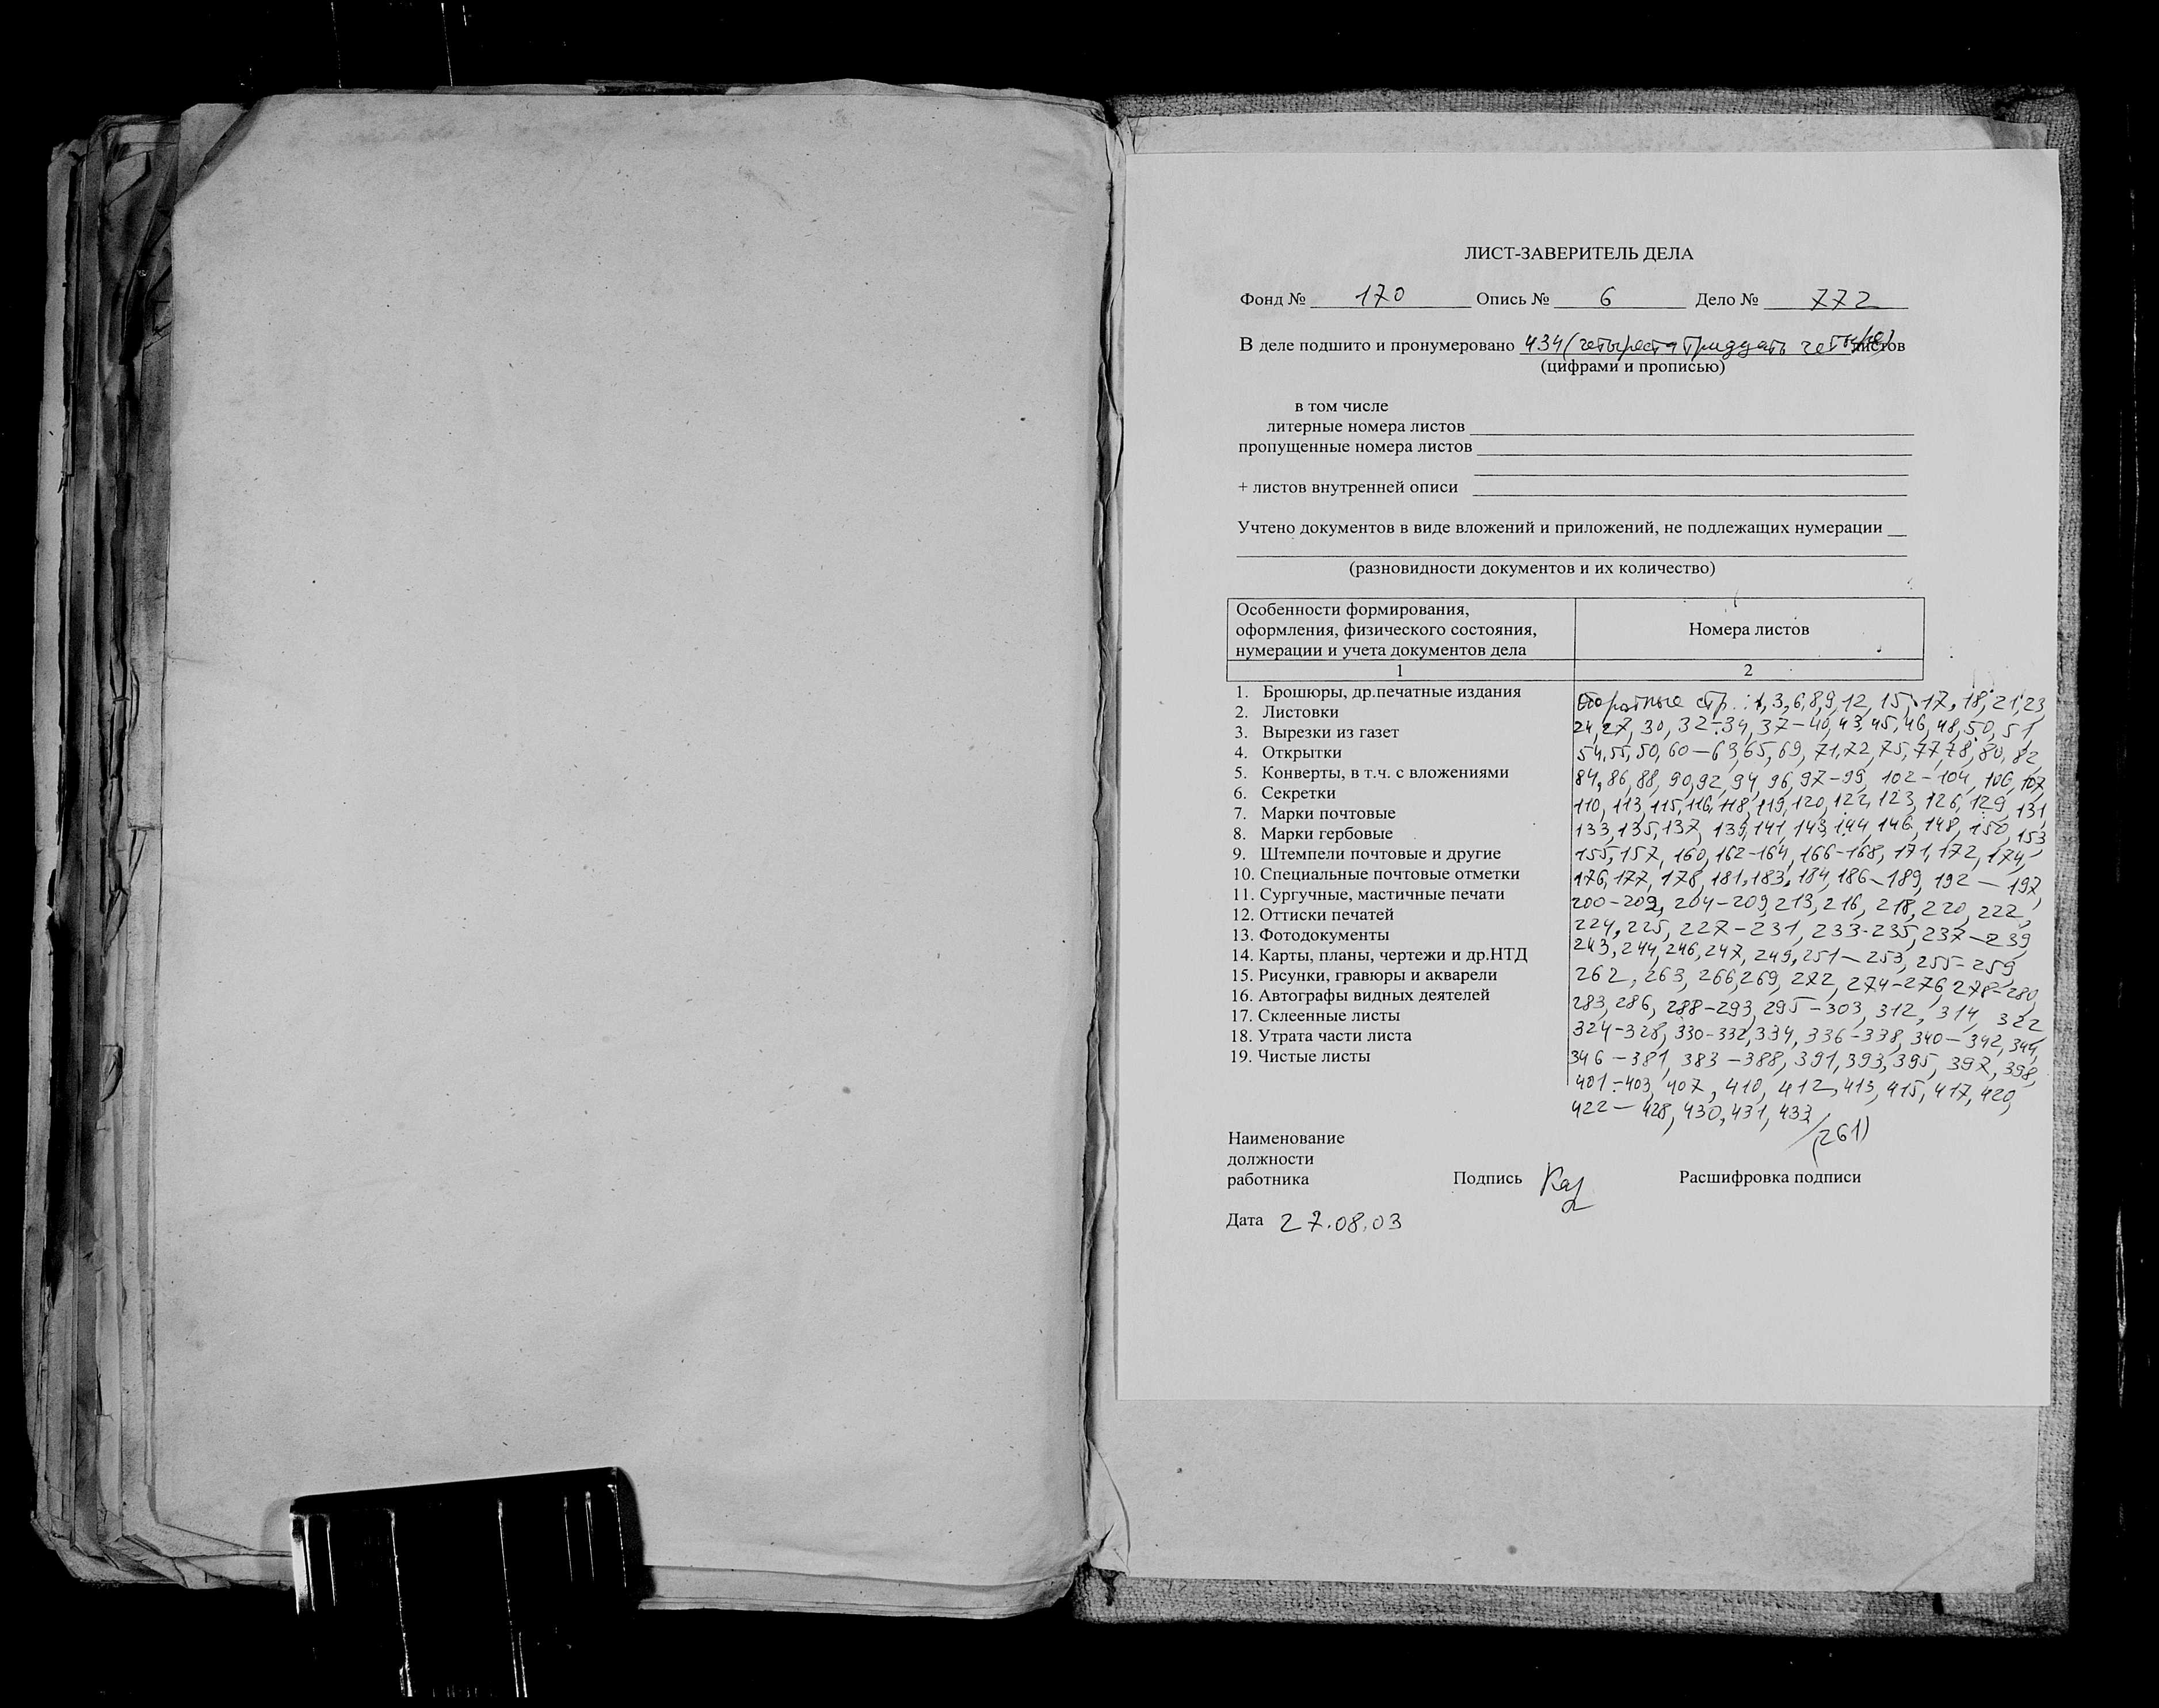 ЛИСТ-ЗАВЕРИТЕЛЬ ДЕЛА
Фонд № 170 Опись № 6 Дело № 772
В деле подшито и пронумеровано 434 (четыреста тридцать четыре) листов
(цифрами и прописью)
в том числе
литерные номера листов
пропущенные номера листов
+ листов внутренней описи
Учтено документов в виде вложений и приложений, не подлежащих нумерации
(разновидности документов и их количество)
Особенности формирования,
оформления, физического состояния,
нумерации и учета документов дела
Номера листов
1 2
1. Брошюры, др.печатные издания
2. Листовки
3. Вырезки из газет
4. Открытки
5. Конверты, в т.ч. с вложениями
6. Секретки
7. Марки почтовые
8. Марки гербовые
9. Штемпели почтовые и другие
10. Специальные почтовые отметки
11. Сургучные, мастичные печати
12. Оттиски печатей
13. Фотодокументы
14. Карты, планы, чертежи и др.НТД
15. Рисунки, гравюры и акварели
16. Автографы видных деятелей
17. Склеенные листы
18. Утрата части листа
19. Чистые листы
Оборотные стр.: 1, 3, 6, 8, 9, 12, 15, 17, 18, 21, 23
24, 27, 30, 32-34, 37-40, 43, 45, 46, 48, 50, 51,
54, 55, 50, 60-63, 65, 69, 71, 72, 75, 77, 78, 80, 82,
84, 86, 88, 90, 92, 94, 96, 97-99, 102-104, 106, 107,
110, 113, 115, 116, 118, 119, 120, 122, 123, 126, 129, 131,
133, 135, 137, 139, 141, 143, 144, 146, 148, 150, 153
155, 157, 160, 162-164, 166-168, 171, 172, 174,
176, 177, 178, 181, 183, 184, 186-189, 192-197,
200-202, 204-209, 213, 216, 218, 220, 222,
224, 225, 227-231, 233-235, 237-239
243, 244, 246, 247, 249, 251-253, 255-259,
262, 263, 266, 269, 272, 274-276, 278-280,
283, 286, 288-293, 295-303, 312, 314, 322
324-328, 330-332, 334, 336-338, 340-342, 344,
346-381, 383-388, 391, 393, 395, 397, 398,
401-403, 407, 410, 412, 413, 415, 417, 420,
422-428, 430, 431, 433
(261)
Наименование
должности
работника Подпись Расшифровка подписи
Дата 27.08.03